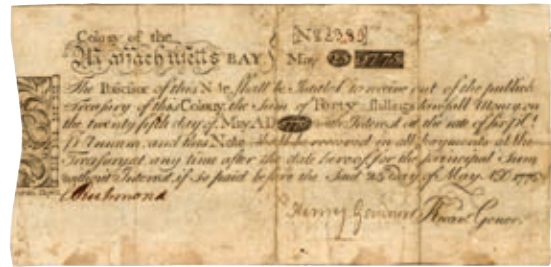 Colony of the [No 2385]
Massachusetts BAY May 25 1775
The Possessor of this Note shall be Intitled to receive out of the publick
Treasury of this Colony, the Sum of Forty shillings Lawfull Money, on
the twenty fifth day of May AD with Interest at the rate of six
Annum, and this Note shall be received in all payments at the
Treasury at any time after the date hereof for the principal Sum
without Interest, if so paid before the Said 25 day of May AD 1776
Richmond
Henry Gardner Trear. & Rr. Genl.